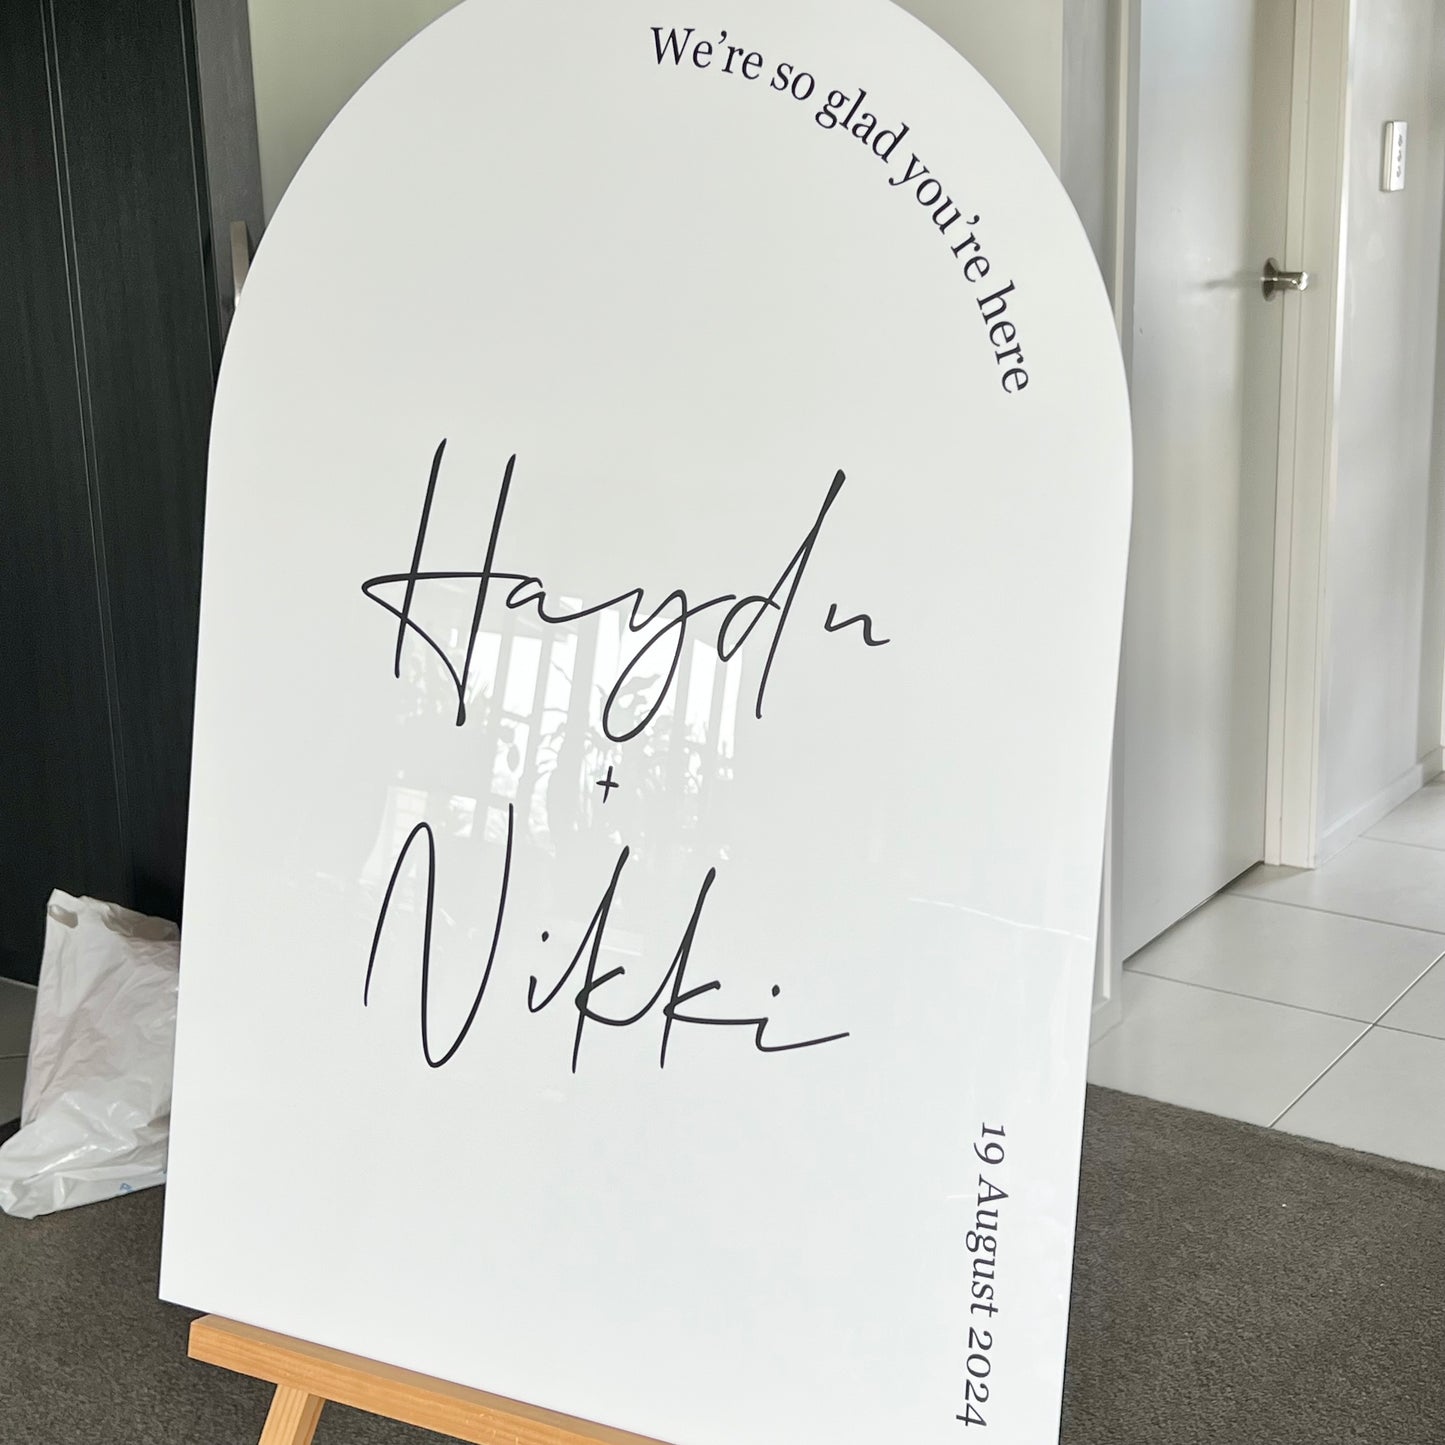 We're so glad you're here
Haydn
+
Nikki
19 August 2024